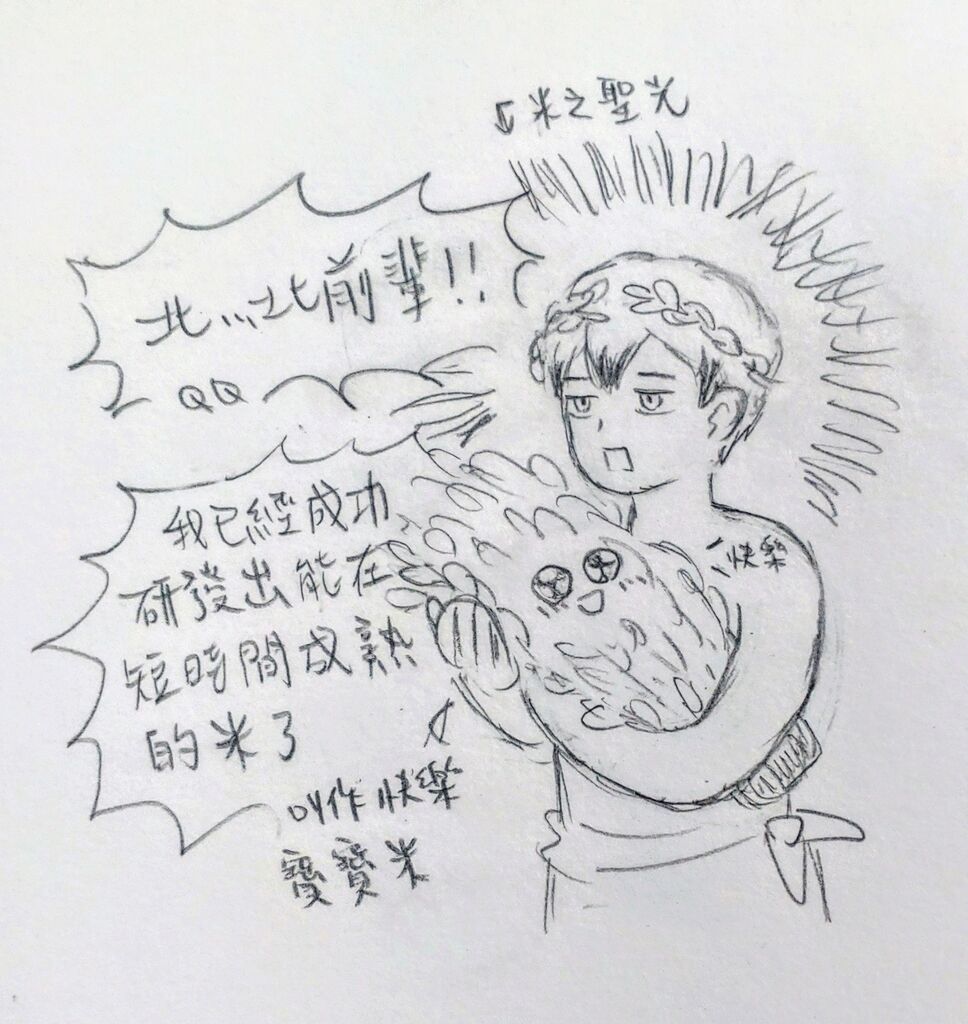 米之聖光
北...北前輩!!
QQ
我已經成功
研發出能在
短時間成熟
的米了
快樂
叫作快樂
寶寶米